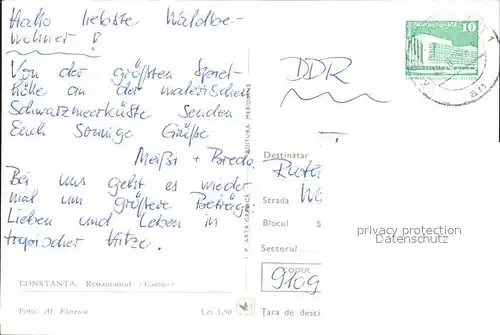 Hallo liebste Waldbe-
wohner!
Von der größten Spiel-
hölle an der malerischen
Schwarzmeerküste senden
Euch sonnige Grüße
Meißi + Bredo.
Bei uns geht es wieder
mal um größere Beträge
Lieben und Leben in
tropischer Hitze.
CONSTANȚA, Restaurantul «Cazino»
Foto: Al Florescu Lei 1,50
I. P. ARTA GRAFICĂ EDITURA MERIDIANE
10
DDR
Destinatar
Strada
Blocul S
Sectorul
CODUL
9109
Țara de desti
privacy protection
Datenschutz